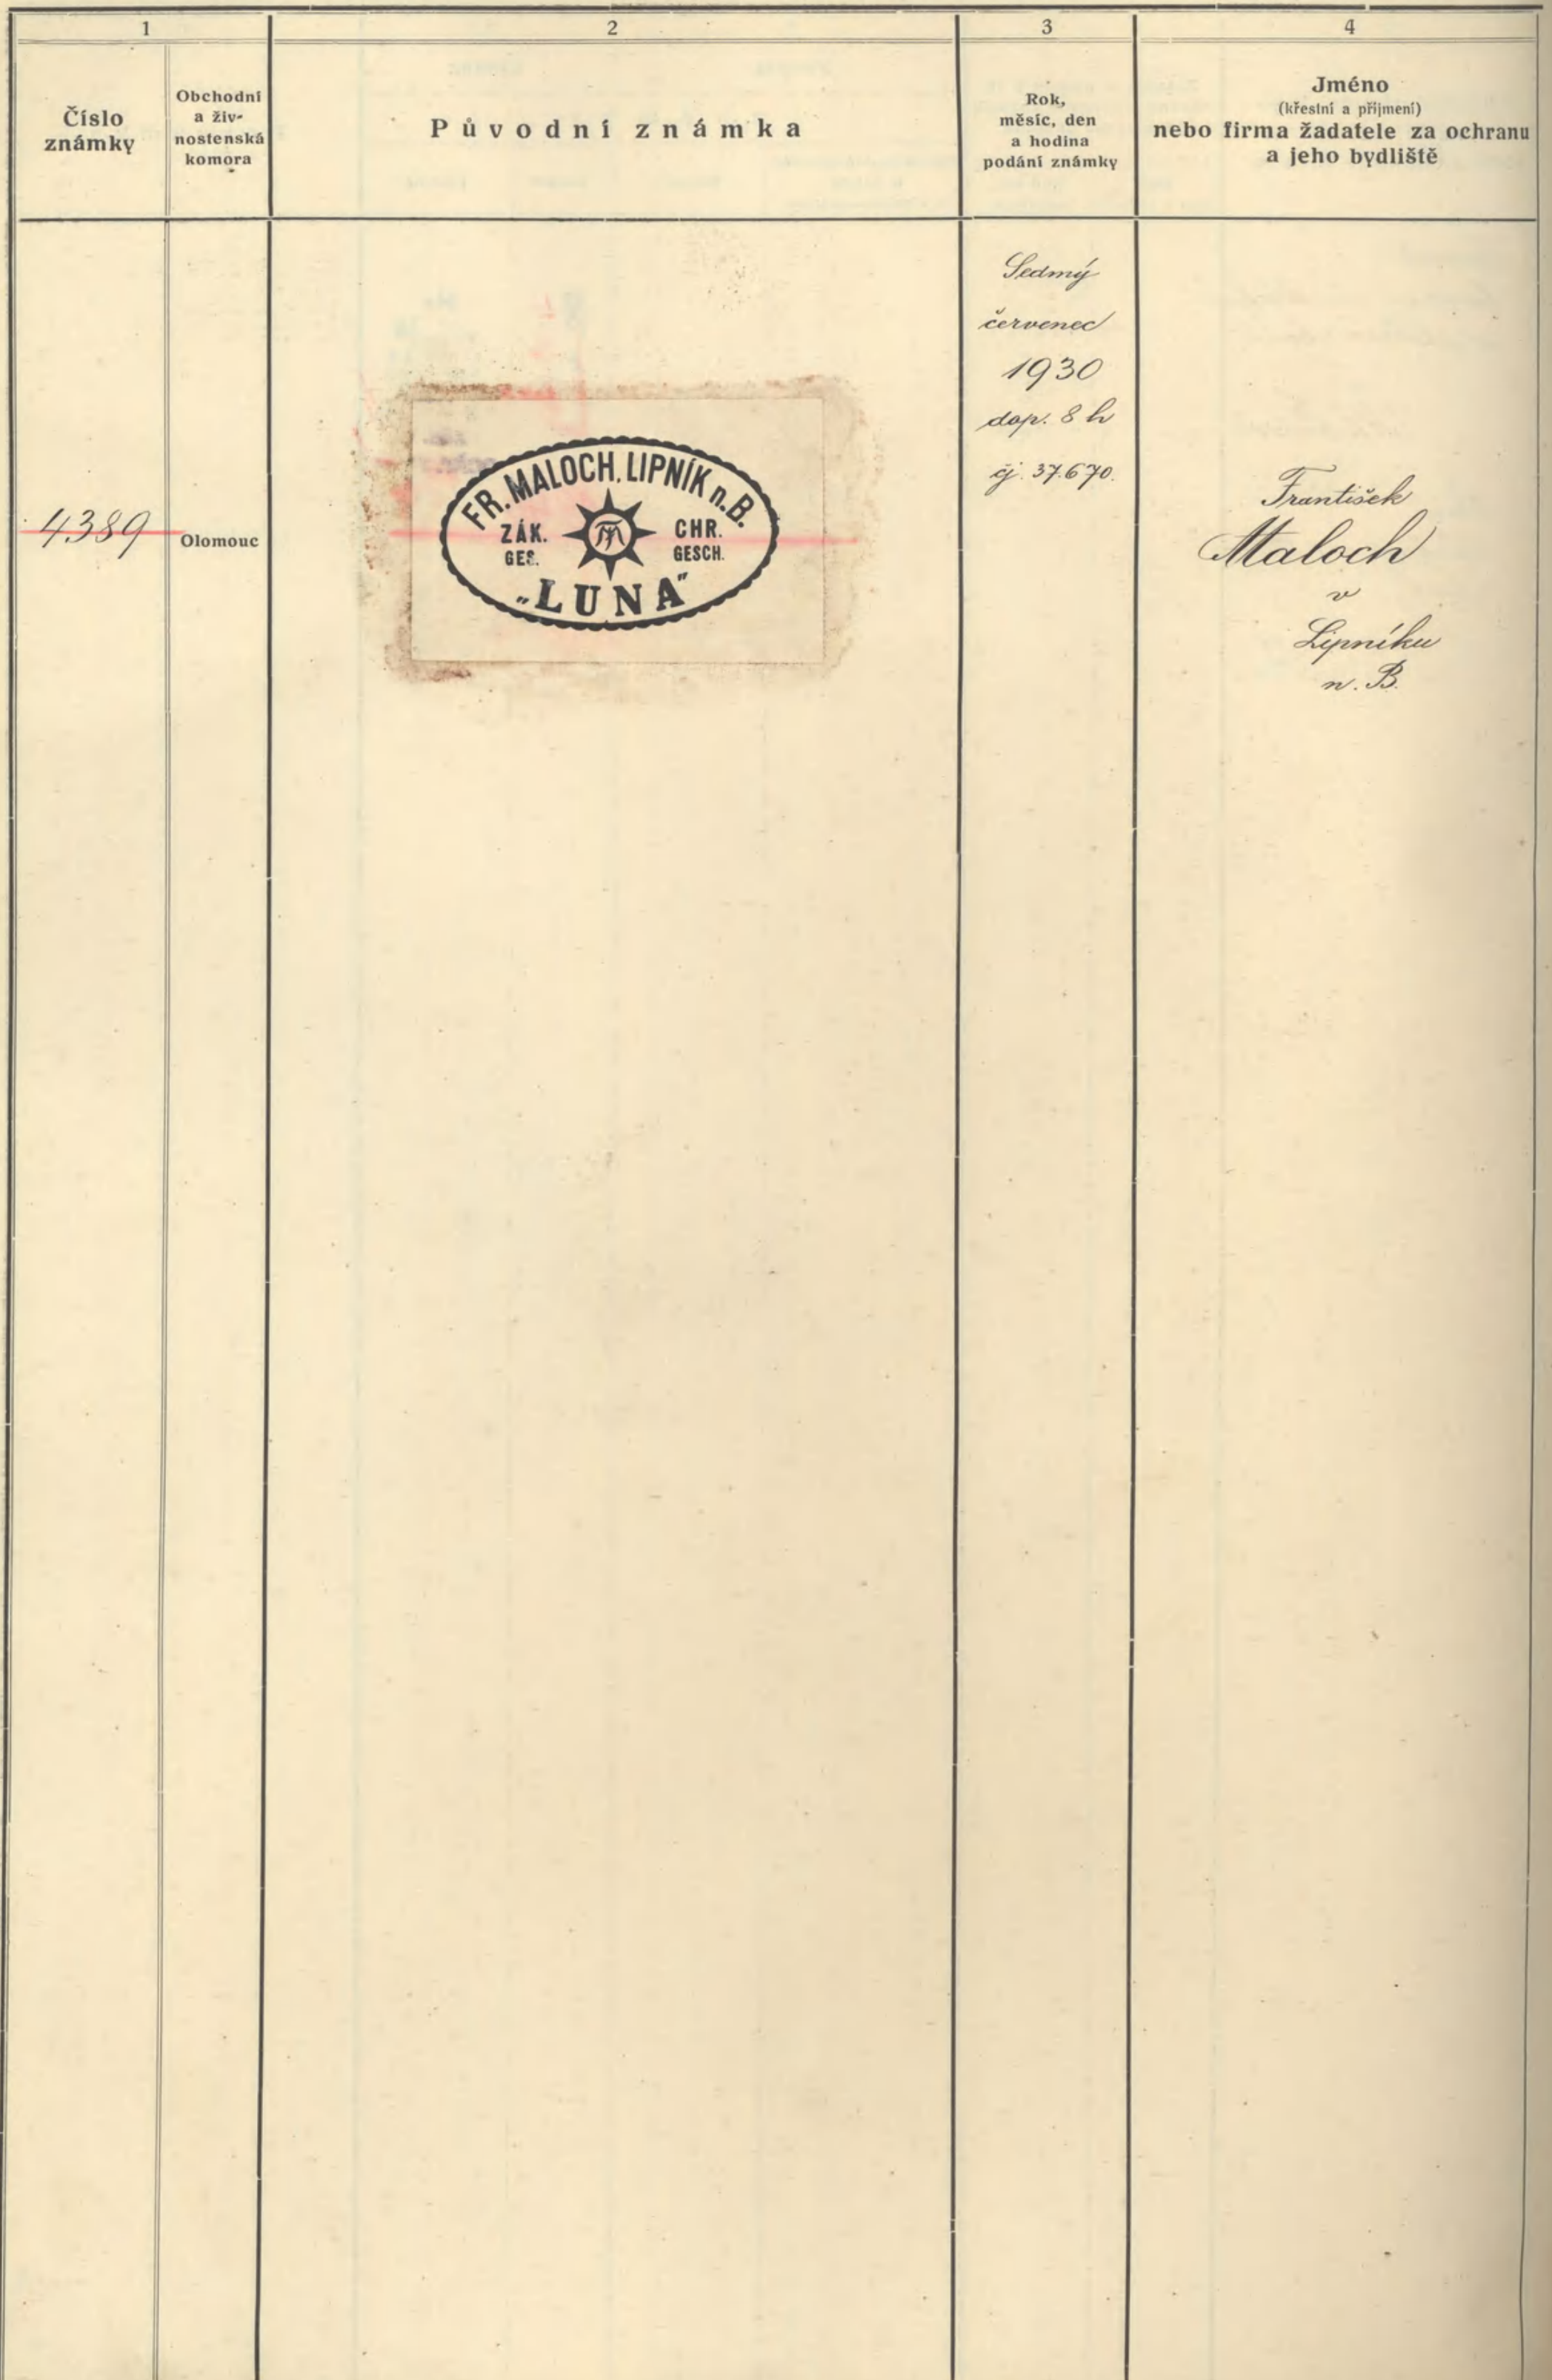 1
2
3
4
Číslo
známky
Obchodní
a živ-
nostenská
komora
Původní známka
Rok,
měsíc, den
a hodina
podání známky
Jméno
(křestní a příjmení)
nebo firma žadatele za ochranu
a jeho bydliště
4389
Olomouc
FR. MALOCH, LIPNÍK n.B.
ZÁK. CHR.
GES. GESCH.
„LUNA"
Sedmý
červenec
1930
dop. 8 h
čj. 37.670.
František
Maloch
v
Lipníku
n. B.